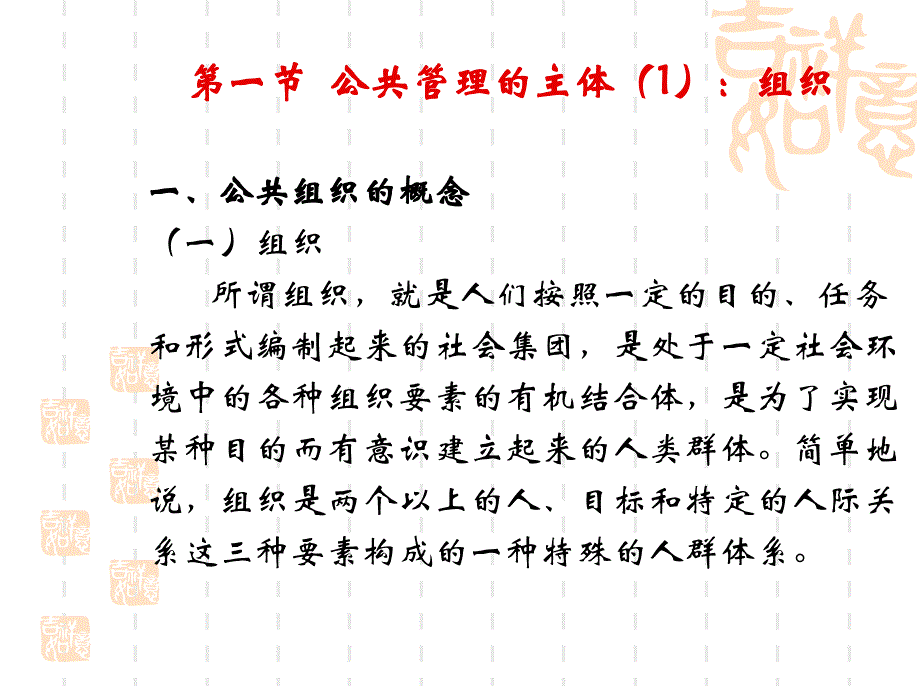 吉祥如意
第一节 公共管理的主体（1）：组织
一、公共组织的概念
（一）组织
所谓组织，就是人们按照一定的目的、任务
和形式编制起来的社会集团，是处于一定社会环
境中的各种组织要素的有机结合体，是为了实现
某种目的而有意识建立起来的人类群体。简单地
说，组织是两个以上的人、目标和特定的人际关
系这三种要素构成的一种特殊的人群体系。
吉祥如意
吉祥如意
吉祥如意
吉祥如意
吉祥如意
吉祥如意